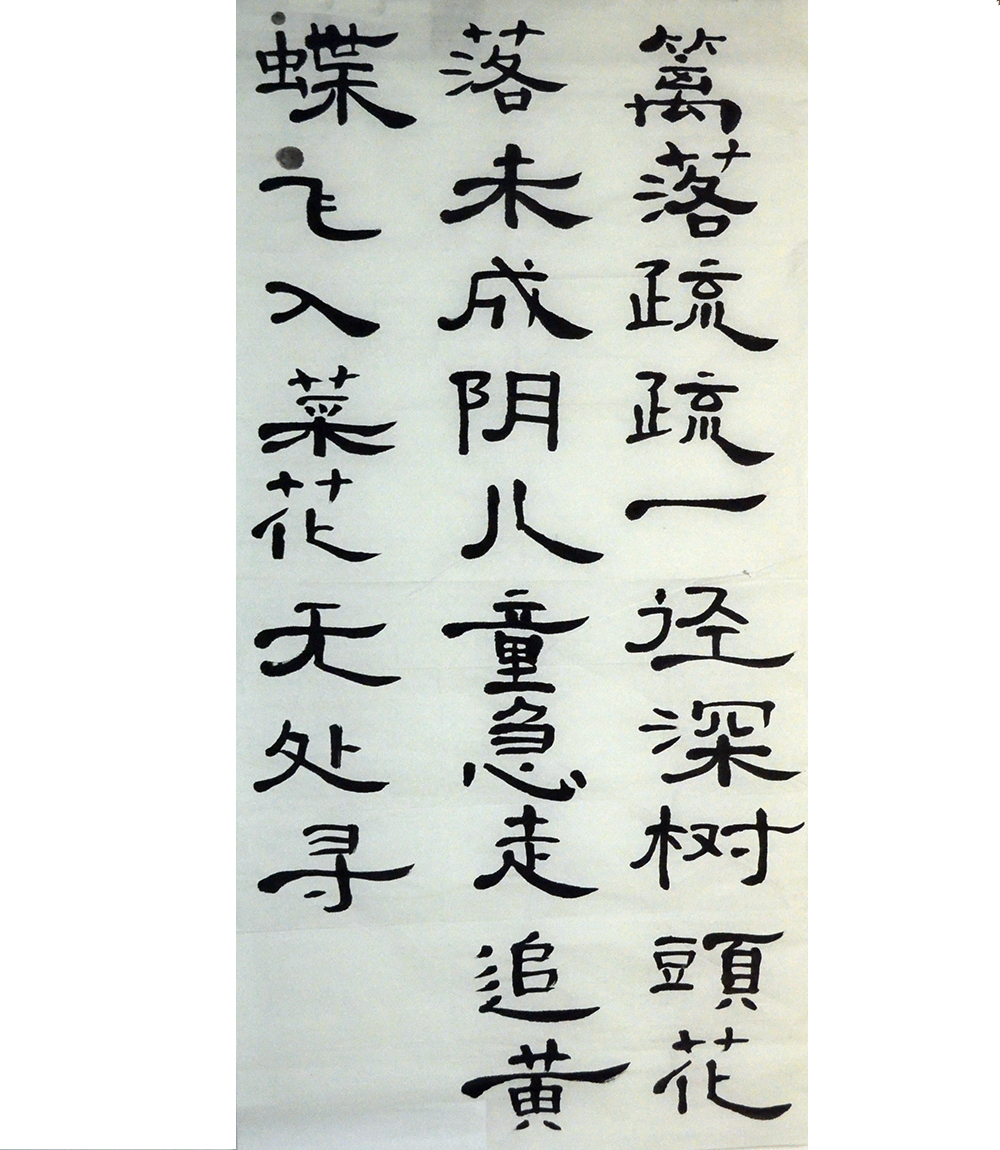 篱落疏疏一径深树頭花
落未成阴儿童急走追黄
蝶飞入菜花无处寻